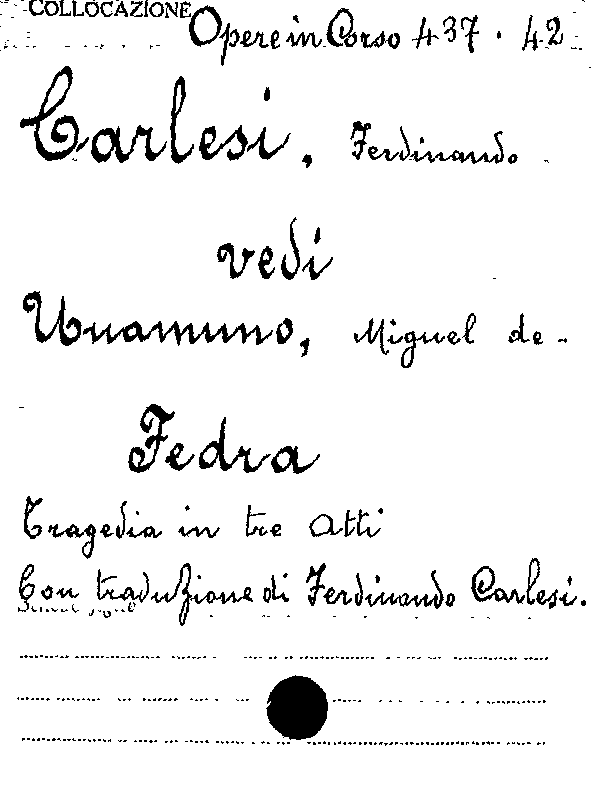 COLLOCAZIONE Opere in Corso 437 · 42
Carlesi, Ferdinando
vedi
Unamuno, Miguel de -
Fedra
Tragedia in tre Atti
Con traduzione di Ferdinando Carlesi.